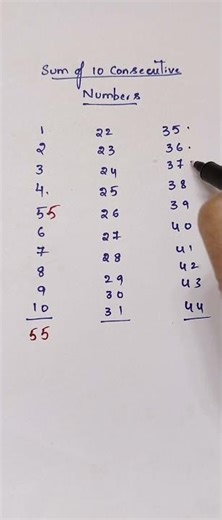 Sum of 10 Consecutive
Numbers
1 22 35.
2 23 36.
3 24 37.
4. 25 38
55 26 39
6 27 40
7 28 41
8 29 42
9 30 43
10 31 44
55